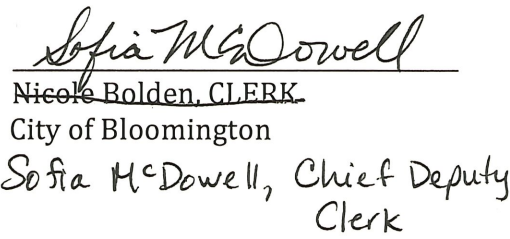 Sofia McDowell
Nicole Bolden, CLERK
City of Bloomington
Sofia McDowell, Chief Deputy
Clerk